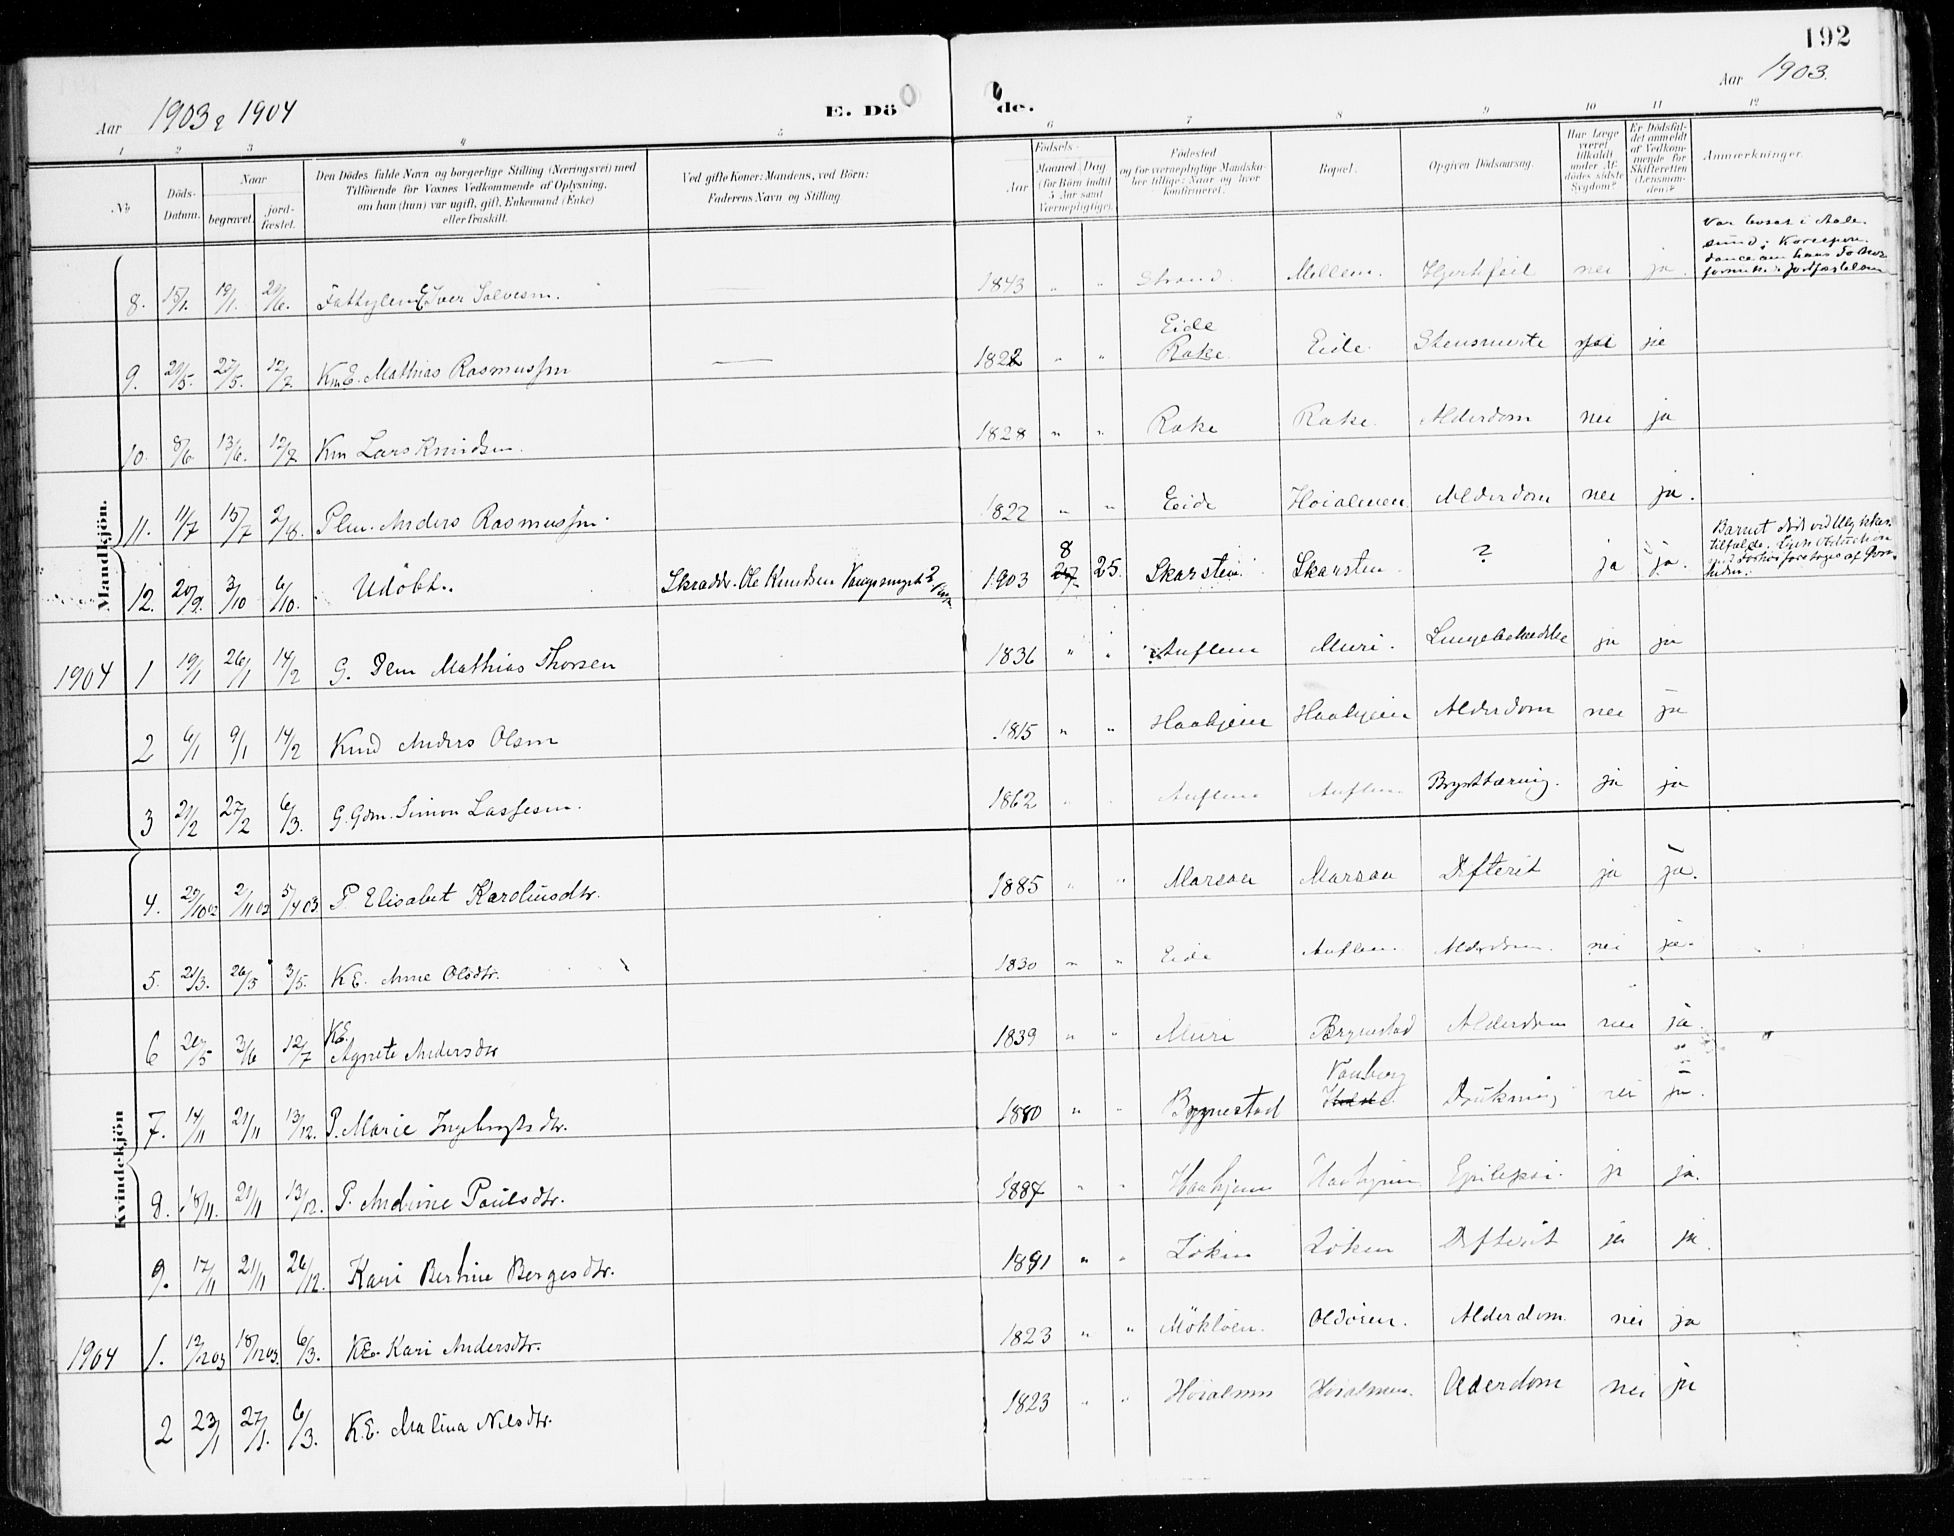 192
Aar 1903 & 1904
E. Dö
de.
Aar 1903.
1 2 3 4 5 6 7 8 9 10 11 12
No.
Döds-Datum.
Naar
begravet.
jord-fæstet.
Den Dödes fulde Navn og borgerlige Stilling (Næringsvei) med
Tilföiende for Voxnes Vedkommende af Oplysning,
om han (hun) var ugift, gift, Enkemand (Enke)
eller fraskilt.
Ved gifte Koner: Mandens, ved Börn:
Faderens Navn og Stilling.
Födsels-
Aar
Maaned Dag
(for Börn indtil
5 Aar samt
Værnepligtige).
Födested
og for værnepligtige Mandska-
ber tillige: Naar og hvor
konfirmeret.
Bopæl.
Opgiven Dödsaarsag.
Har Læge
været
tilkaldt
under Af-
dödes sidste
Sygdom?
Er Dödsfal-
det anmeldt
af Vedkom-
mende for
Skifteretten
(Lensman-
den)?
Anmærkninger.
Mandkjön.
8. 15/1. 19/1. 21/6. Fattiglem E Iver Salvesen. 1843 " " Strand. Mellem. Hjertefeil nei ja. Var bosat i Aale
sund;
9. 21/5. 27/5. 12/7 Km E. Mathias Rasmussen 1822 " " Eide Rake. Eide. Stensmerte nei ja
10. 8/6. 13/6. 12/7 Km Lars Knudsen. 1828 " " Rake Rake. Alderdom nei ja
11. 11/7 15/7 2/8. Plm. Anders Rasmussen. 1822 " " Eide Hoialmen Alderdom nei ja.
12. 20/9. 3/10 6/10. Udöbt. Skrædder Ole Knudsen 1903 8 25. Skarstein. Skarsten. ? ja ja. Barnet döde ved
1904 1 19/1 26/1 14/2 G. Plm Mathias Thorsen 1836 " " Auflem Muri. Lungebetændelse ja ja
2 6/1 9/1 14/2 Kmd Anders Olsen 1815 " " Haahjem Haahjem Alderdom nei ja
3 21/2 27/2 6/3. G. Gdm. Simon Lassesen. 1862 " " Auflem Auflem Brysttæring. ja ja
Kvindekjön
4. 29/10 02 2/11 02 5/4 03 P. Elisabet Karolusdtr. 1885 " " Marsaa Marsaa Difterit ja ja.
5. 21/3. 26/3 3/5. KE. Anne Olsdtr. 1830 " " Eide Auflem. Alderdom. nei ja.
6 26/5 3/6 12/7 KE. Agnete Andersdtr 1839 " " Muri Brynestad Alderdom nei ja.
7. 14/11 21/11 13/12. P. Marie Ingebrigtsdtr. 1880 " " Brynestad Vanberg Drukning nei ja.
8. 18/11. 21/11 13/12. P. Andrine Paulsdtr. 1887 " " Haahjem Haahjem Epilepsi. ja ja.
9. 17/11 21/11 26/12. Kari Bertine Bergesdtr. 1891 " " Löken Löken Difterit ja ja.
1904 1. 12/12 03 18/12 03. 6/3. KE. Kari Andersdtr. 1823 " " Möklöen. Oldören. Alderdom. nei ja
2 23/1 27/1. 6/3. K.E. Malina Nilsdtr. 1823 " " Hoialmen Hoialmen. Alderdom nei ja